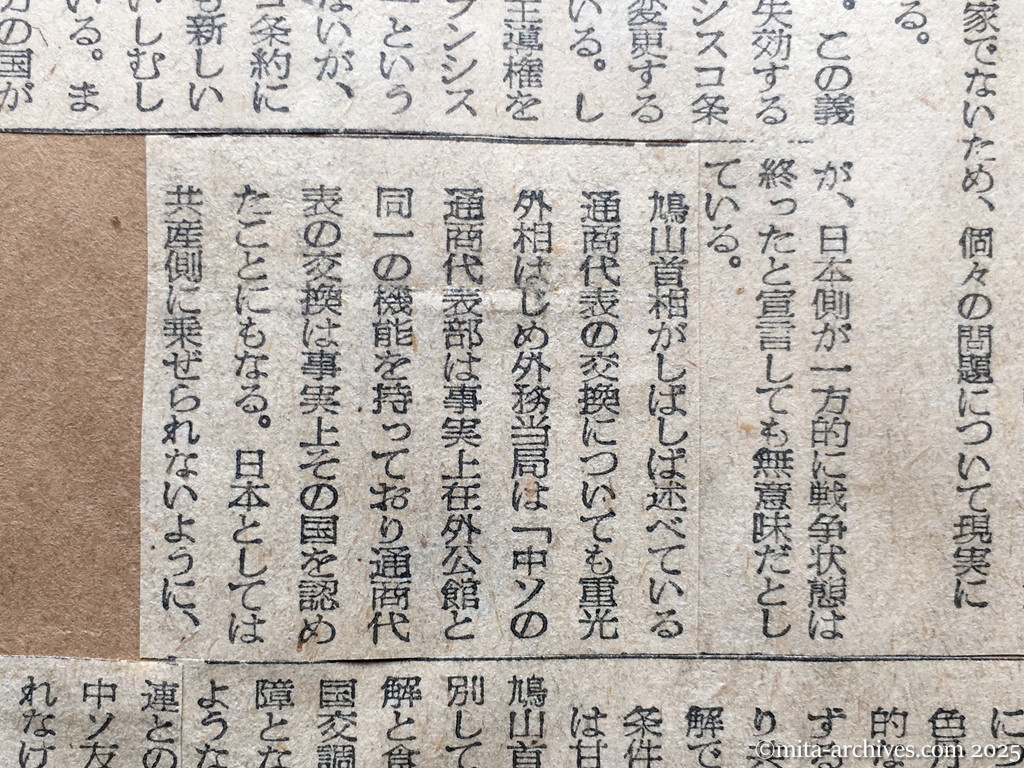 家でないため、個々の問題について現実に
る。
。この義
失効する
シスコ条
変更する
いる。し
主導権を
ランシス
ーという
ないが、
コ条約に
も新しい
いしむし
いる。ま
方の国が
が、日本側が一方的に戦争状態は
終ったと宣言しても無意味だとし
ている。
鳩山首相がしばしば述べている
通商代表の交換についても重光
外相はじめ外務当局は「中ソの
通商代表部は事実上在外公館と
同一の機能を持っており通商代
表の交換は事実上その国を認め
たことにもなる。日本としては
共産側に乗ぜられないように、
につ
的な
ずる
りべ
解で
条件
は甘
鳩山首
別して
解と食
国交調
障とな
ような
連との
中ソ友
れなけ
©mita-archives.com 2025